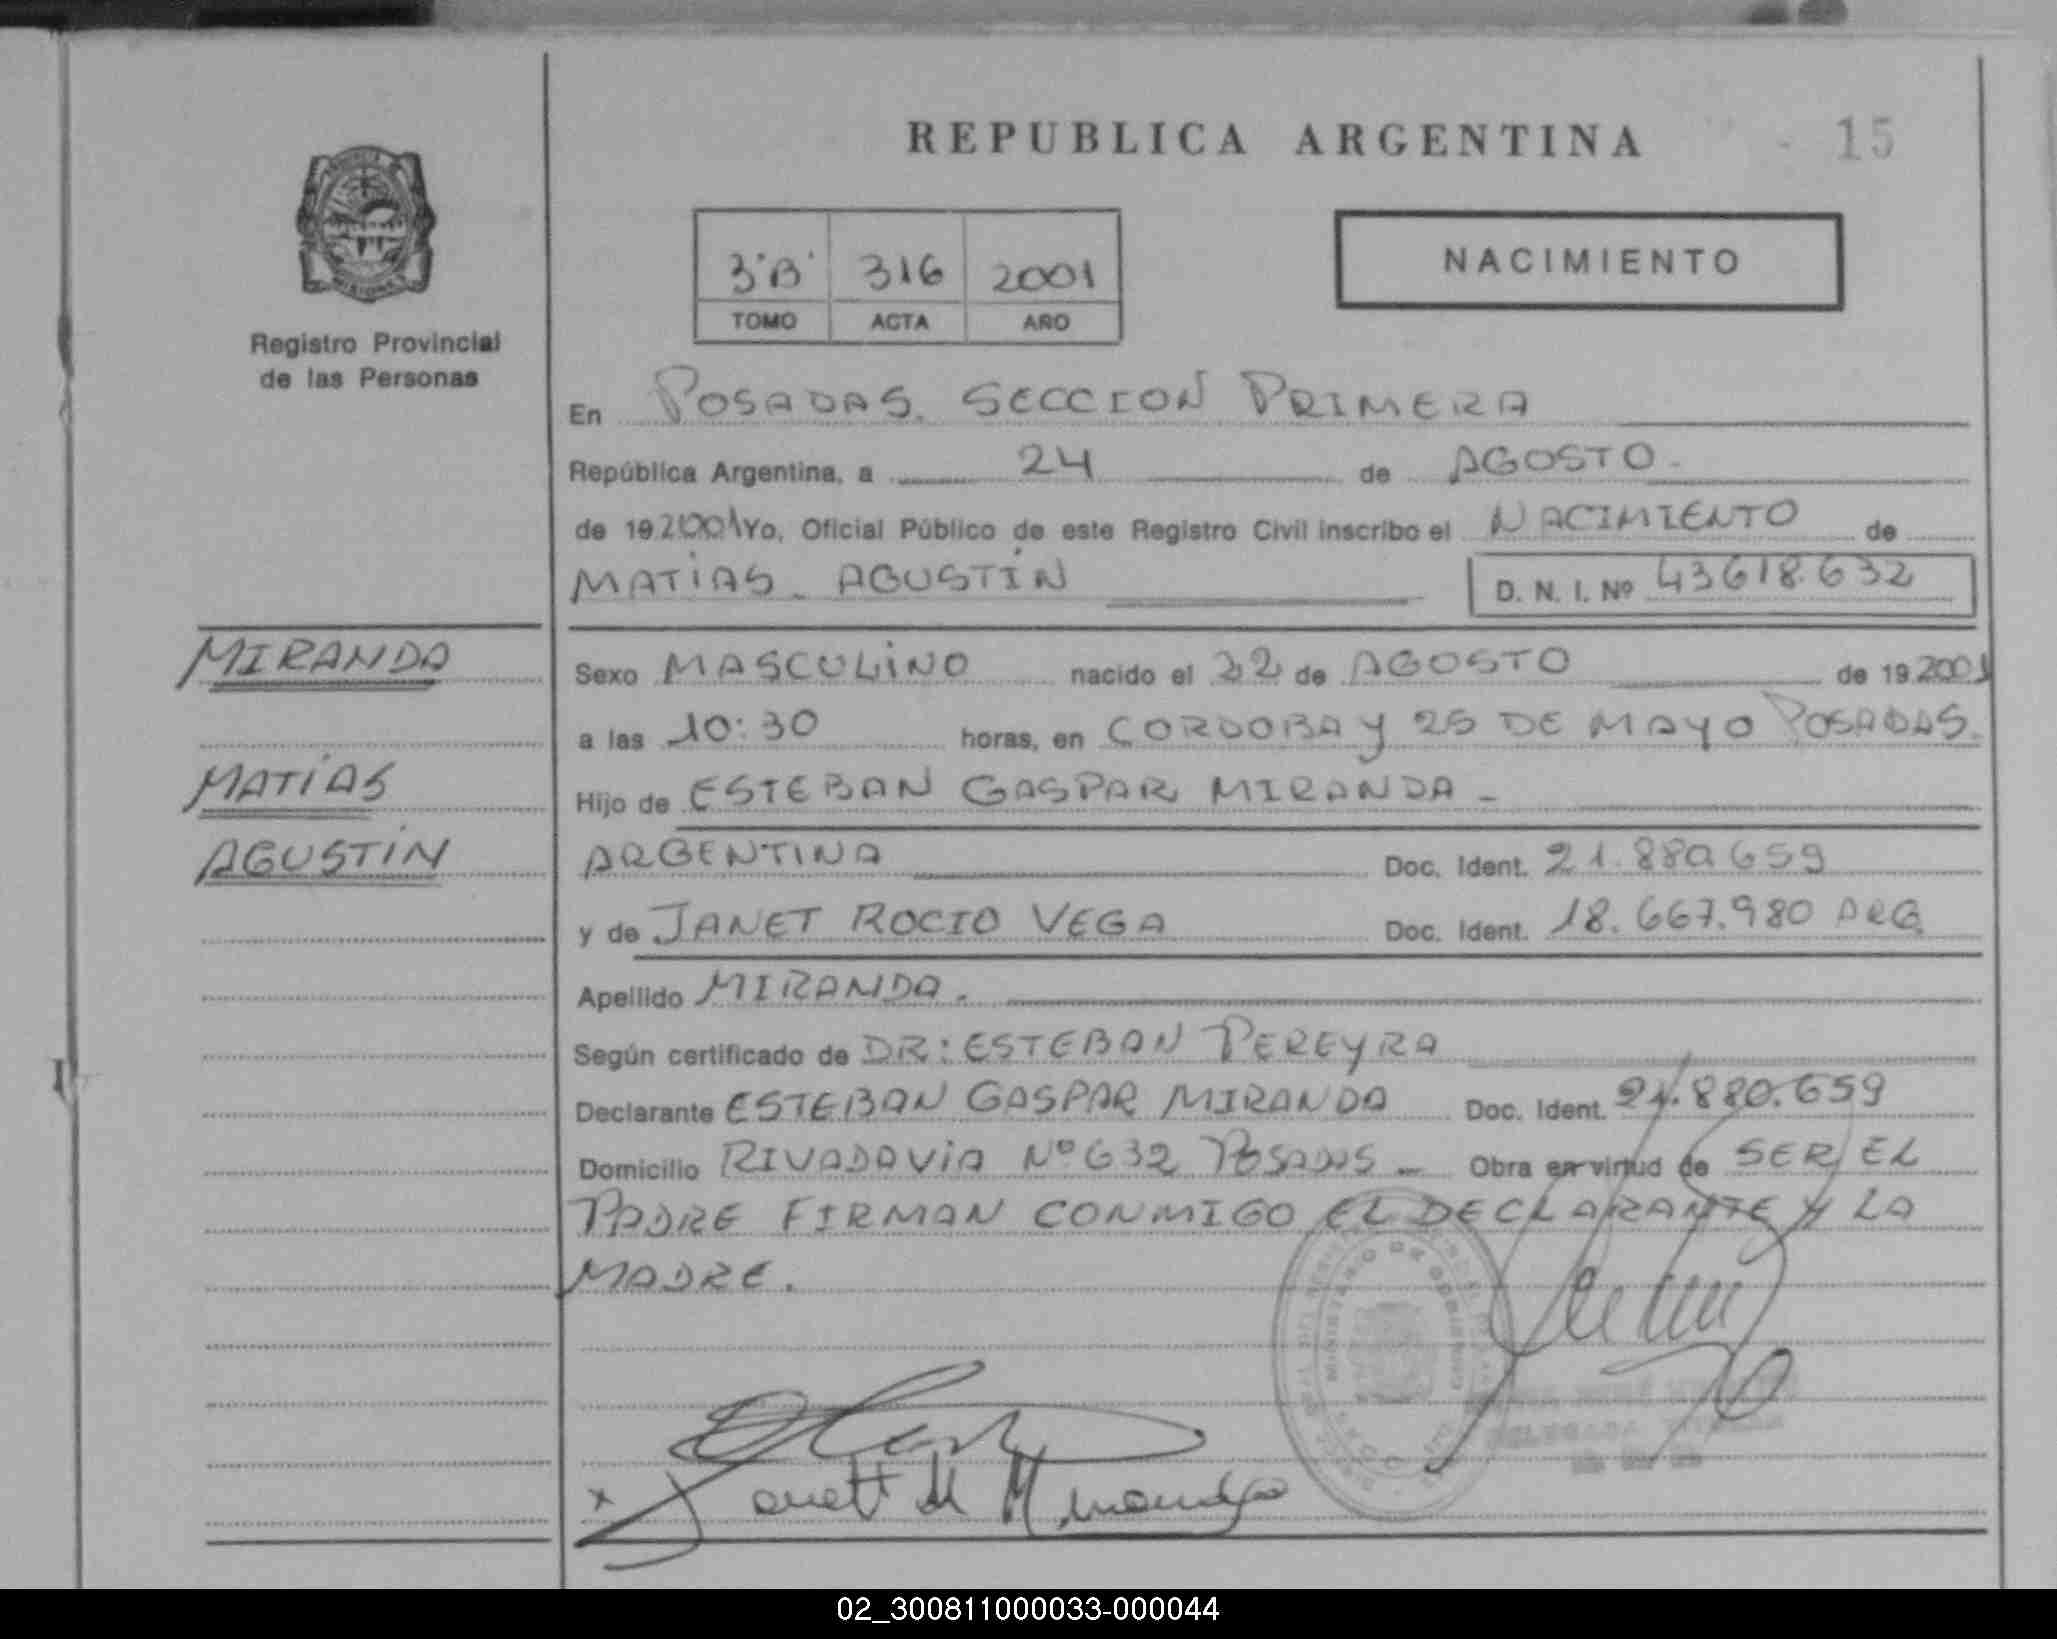 REPUBLICA ARGENTINA
15
Registro Provincial
de las Personas
3"B" 316 2001
TOMO ACTA AÑO
NACIMIENTO
En POSADAS. SECCION PRIMERA
República Argentina, a 24 de AGOSTO.
de 19 2001 Yo, Oficial Público de este Registro Civil inscribo el NACIMIENTO de
MATÍAS AGUSTÍN D. N. I. Nº 43618.632
MIRANDA
MATÍAS
AGUSTÍN
Sexo MASCULINO nacido el 22 de AGOSTO de 19 2001
a las 10:30 horas, en CORDOBA y 25 DE MAYO POSADAS.
Hijo de ESTEBAN GASPAR MIRANDA -
ARGENTINA Doc. Ident. 21.880.659
y de JANET ROCIO VEGA Doc. Ident. 18.667.980 ARG
Apellido MIRANDA.
Según certificado de DR: ESTEBAN PEREYRA
Declarante ESTEBAN GASPAR MIRANDA Doc. Ident. 21.880.659
Domicilio RIVADAVIA Nº 632 POSADAS - Obra en virtud de SER EL
PADRE FIRMAN CONMIGO EL DECLARANTE Y LA
MADRE.
MINISTERIO DE GOBIERNO
x
02_300811000033-000044